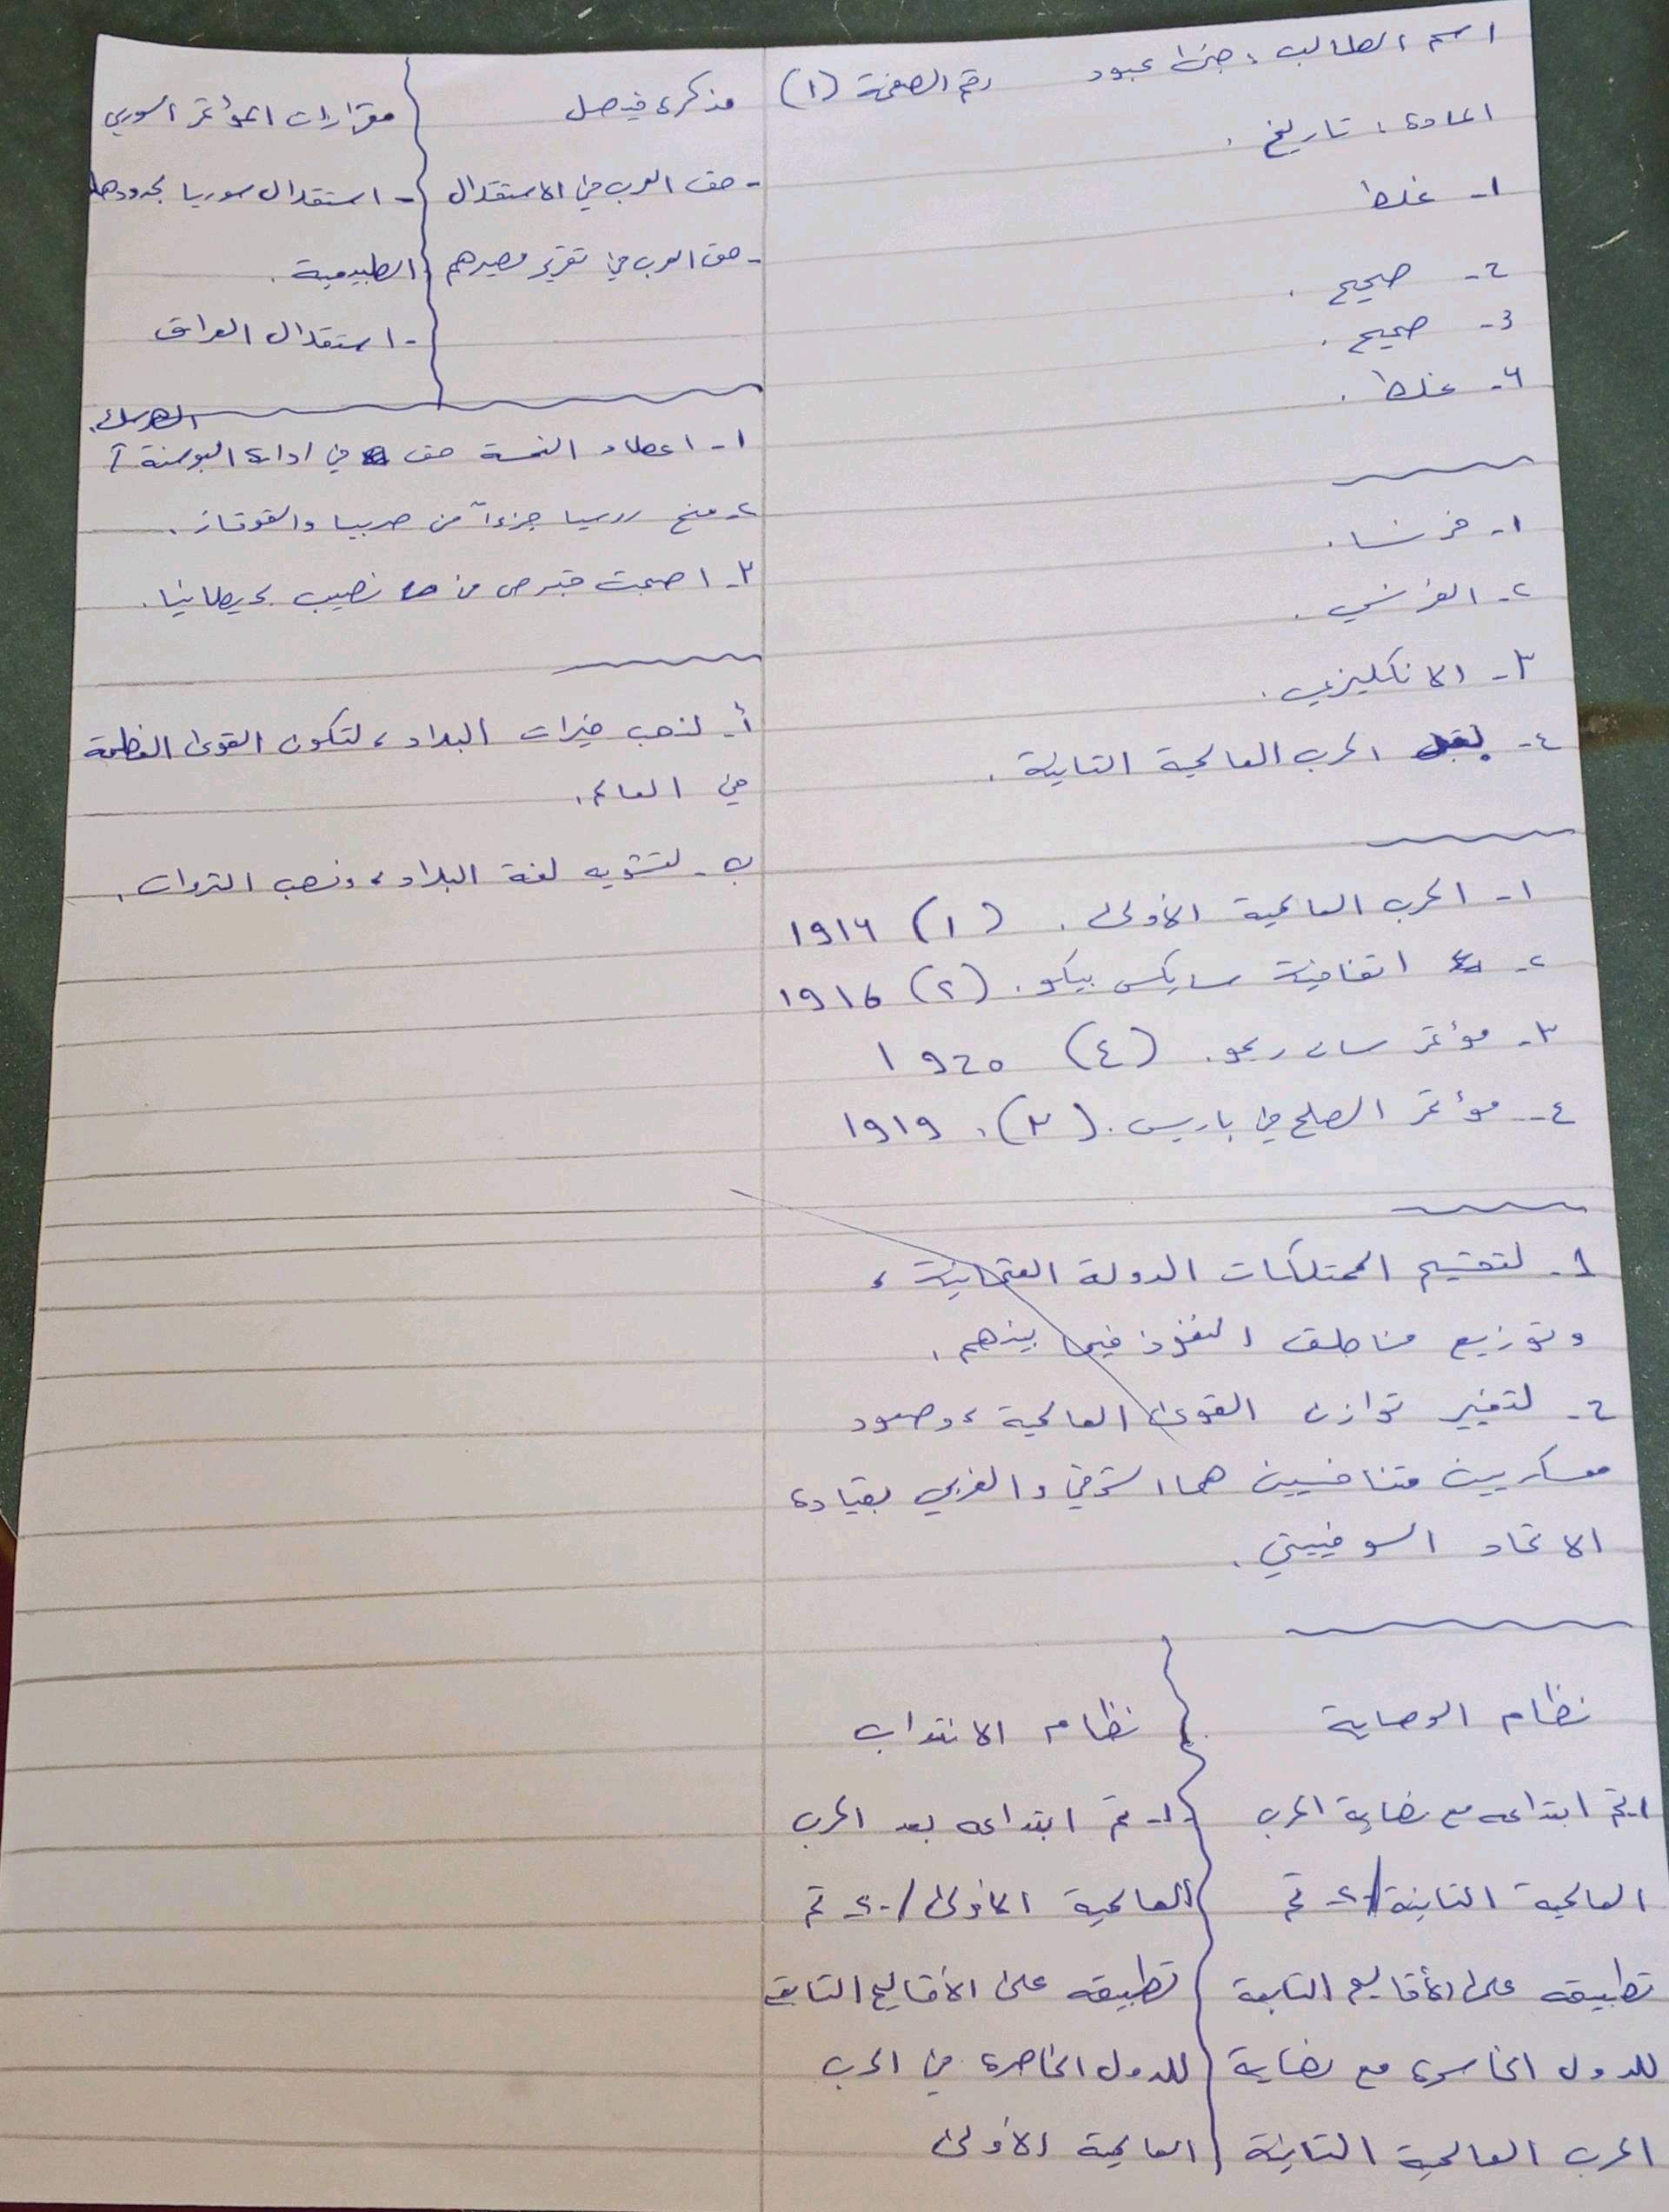 اسم الطالب: جنى عبود رقم الصفحة (١)
المادة: تاريخ.
١- غلط
٢- صحيح.
٣- صحيح.
٤- غلط.
١- فرنسا.
٢- الفرنسي.
٣- الانكليزي.
٤- الحرب العالمية الثانية.
١- الحرب العالمية الأولى. (١) ١٩١٤
٢- اتفاقية سايكس بيكو. (٢) ١٩١٦
٣- مؤتمر سان ريمو. (٤) ١٩٢٠
٤- مؤتمر الصلح في باريس. (٣). ١٩١٩
١- لتقسيم الممتلكات الدولة العثمانية،
وتوزيع مناطق النفوذ فيما بينهم.
٢- لتغير توازن القوى العالمية، وصعود
معسكريين متنافسيين هما الشرقي والغربي بقيادة
الاتحاد السوفييتي.
نظام الوصاية
١- تم ابتداعه مع نهاية الحرب
العالمية الثانية /٢- تم
تطبيقه على الأقاليم التابعة
للدول الخاسرة مع نهاية
الحرب العالمية الثانية
نظام الانتداب
١- تم ابتداعه بعد الحرب
العالمية الأولى /٢- تم
تطبيقه على الأقاليم التابعة
للدول الخاصرة في الحرب
العالمية الأولى
مذكرة فيصل
- حق العرب في الاستقلال
- حق العرب في تقرير مصيرهم
مقرارات المؤتمر السوري
- استقلال سوريا بحدودها
الطبيعية.
- استقلال العراق
الهرسك.
١- اعطاء النمسة حق في ادارة البوسنة و
٢- منح روسيا جزءاً من صربيا والقوقاز.
٣- اصبحت قبرص من نصيب بريطانيا.
أ- لنهب خيرات البلاد، لتكون القوى العظمة
في العالم.
ب- لتشويه لغة البلاد، ونهب الثروات.